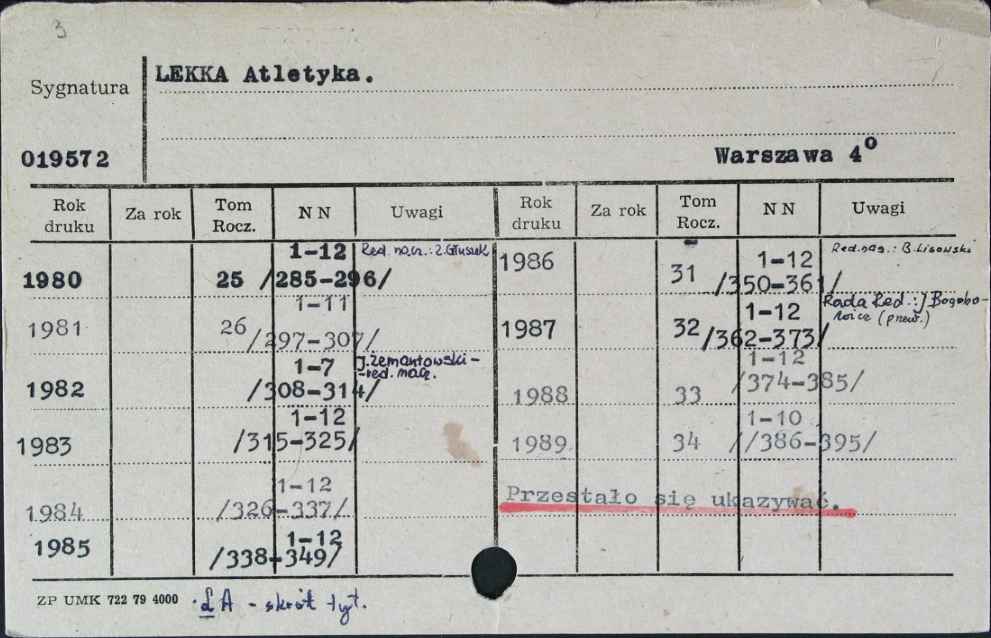 3
LEKKA Atletyka.
Sygnatura
019572
Warszawa 4°
Rok druku Za rok Tom Rocz. NN Uwagi Rok druku Za rok Tom Rocz. NN Uwagi
1980 25 1-12 /285-296/ Red. nacz.: Z. Głuszek
1981 26 1-11 /297-307/
1982 1-7 /308-314/ J. Zemantowski - - red. nacz.
1983 1-12 /315-325/
1984 1-12 /326-337/
1985 1-12 /338-349/
1986 31 1-12 /350-361/ Red. nacz.: B. Lisowski
1987 32 1-12 /362-373/ Rada Red.:
1988 33 1-12 /374-385/
1989 34 1-10 //386-395/
Przestało się ukazywać.
ZP UMK 722 79 4000 ŁA - skrót tyt.